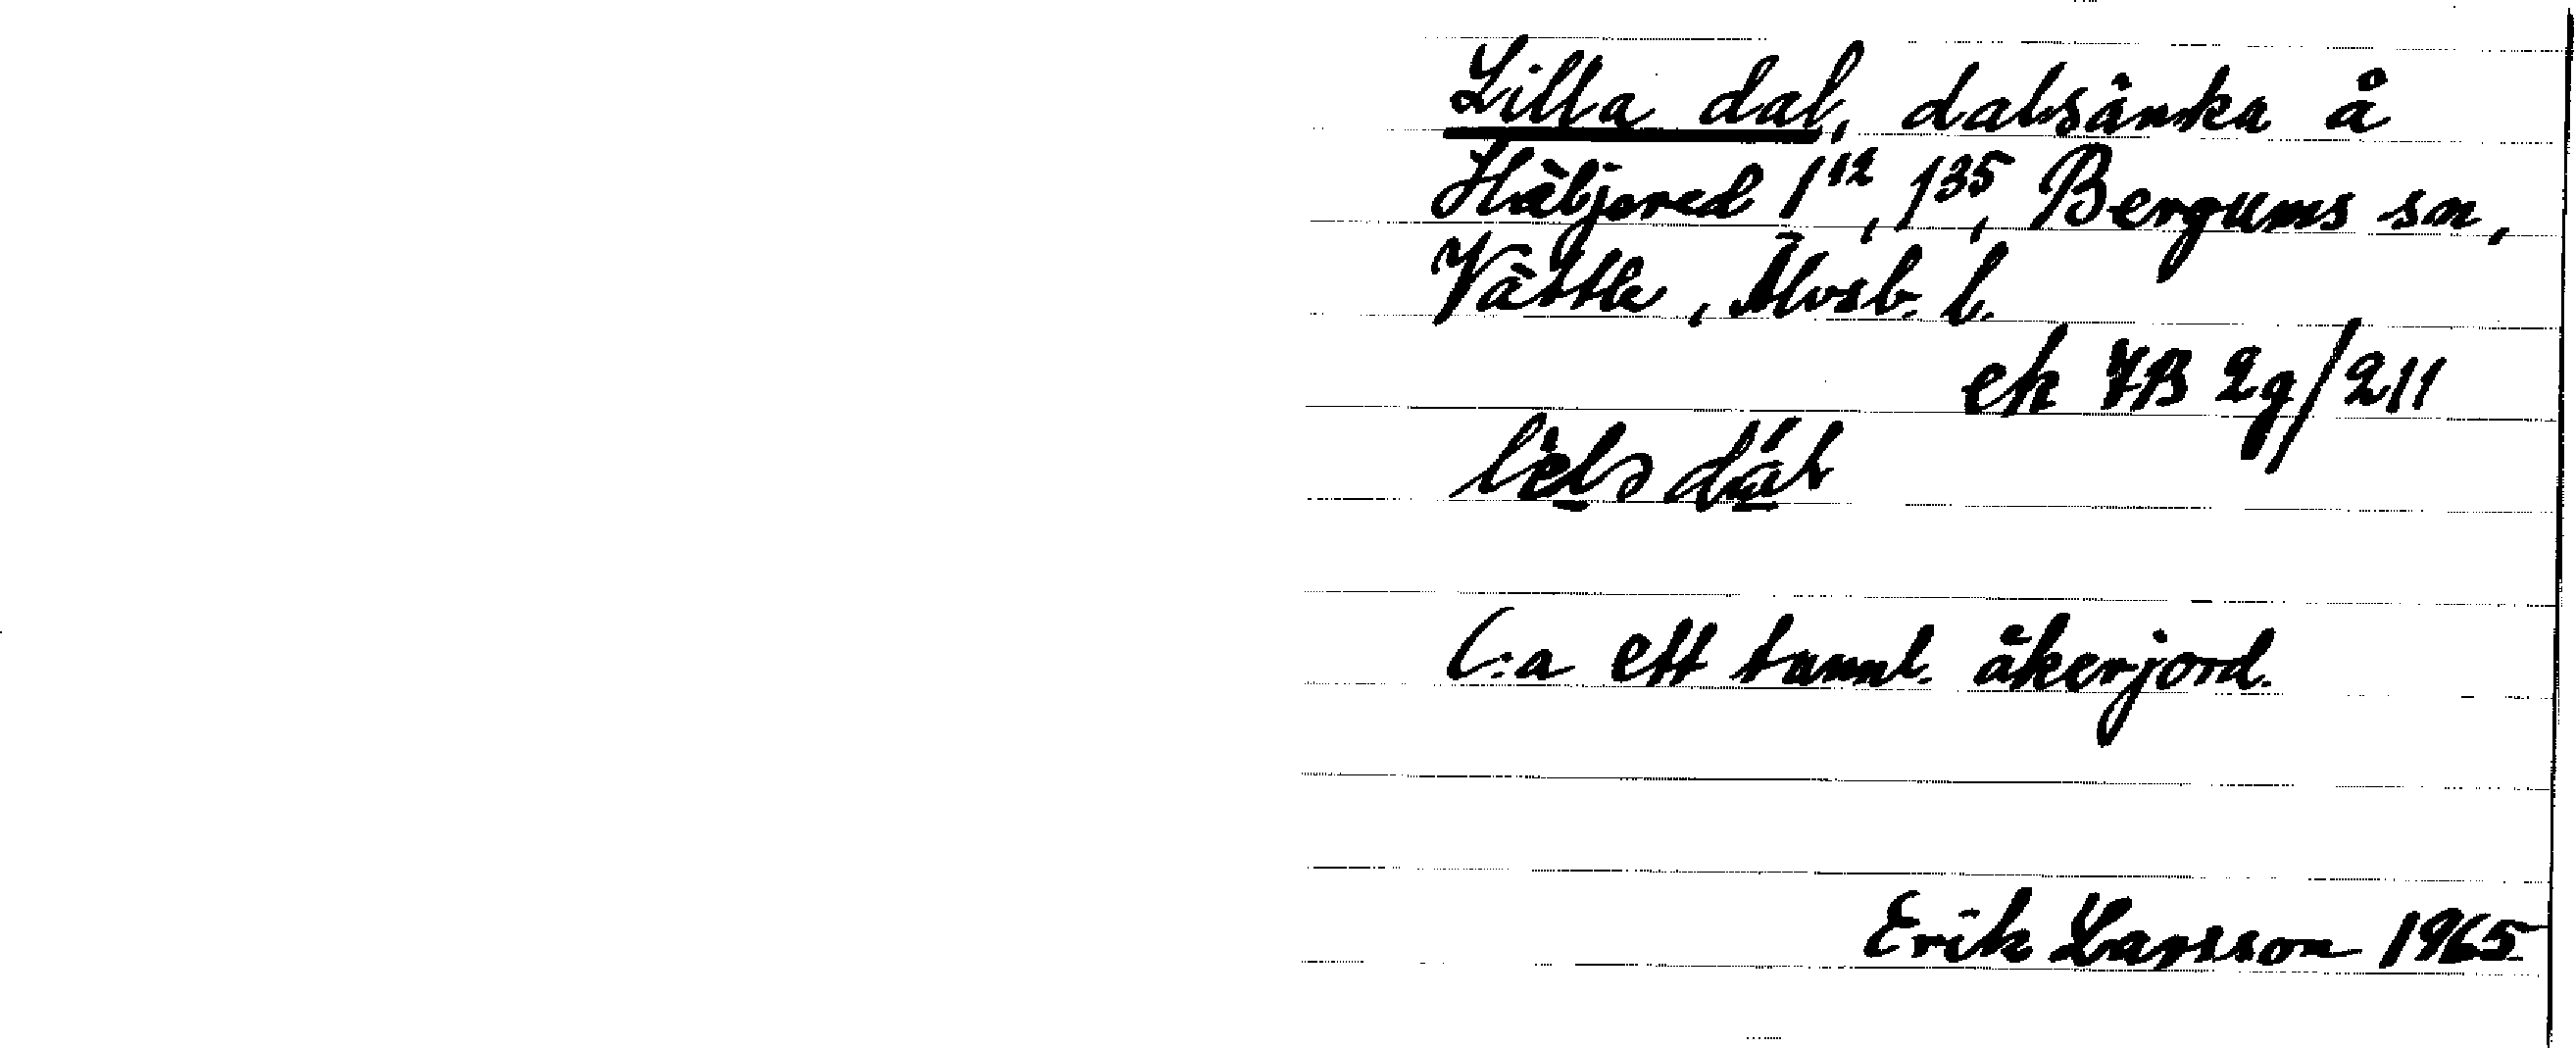 Lilla dal, dalsänka å
Häljered 1¹², 1³⁵, Bergums sn,
Vättle, Älvsb. l.
ek 7B 2g/211
C:a ett tunnl. åkerjord.
Erik Larsson 1965